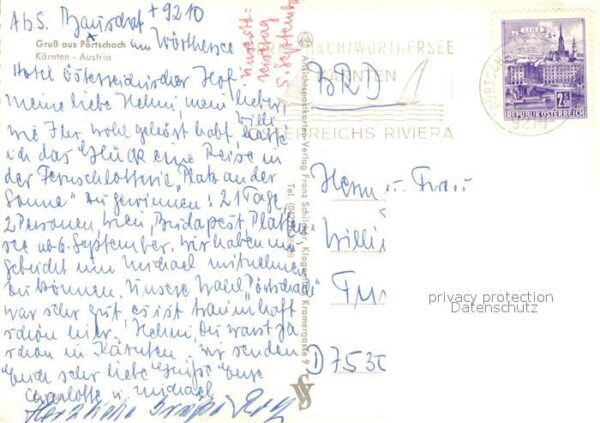 Abs. + 9210
Gruß aus Pörtschach am Wörthersee
Kärnten - Austria
Hotel Österreichischer Hof
Meine liebe Helmi, mein lieber Willi
wie Ihr wohl gehört habt, hatte
ich das Glück eine Reise in
der Fernsehlotterie "Platz an der
Sonne" zu gewinnen: 21 Tage
2 Personen, Wien, Budapest, Platten-
see ab 6. September. Wir haben um-
gebucht um Michael mitnehmen
zu können. Unsere Wahl "Pörtschach"
war sehr gut, es ist traumhaft
schön hier. Helmi, Du warst ja
schon in Kärnten, wir senden
Euch sehr liebe Grüße Eure
Charlotte u. Michael
Herzliche Grüße
5. September
YACHT WÖRTHERSEE
KÄRNTEN
ÖSTERREICHS RIVIERA
LINZ
2.50
REPUBLIK ÖSTERREICH
9210
BRD
Ansichtspostkarten-Verlag Franz Schilcher, Klagenfurt, Kramergasse 9
Herrn u. Frau
Willi
D 7530
privacy protection
Datenschutz